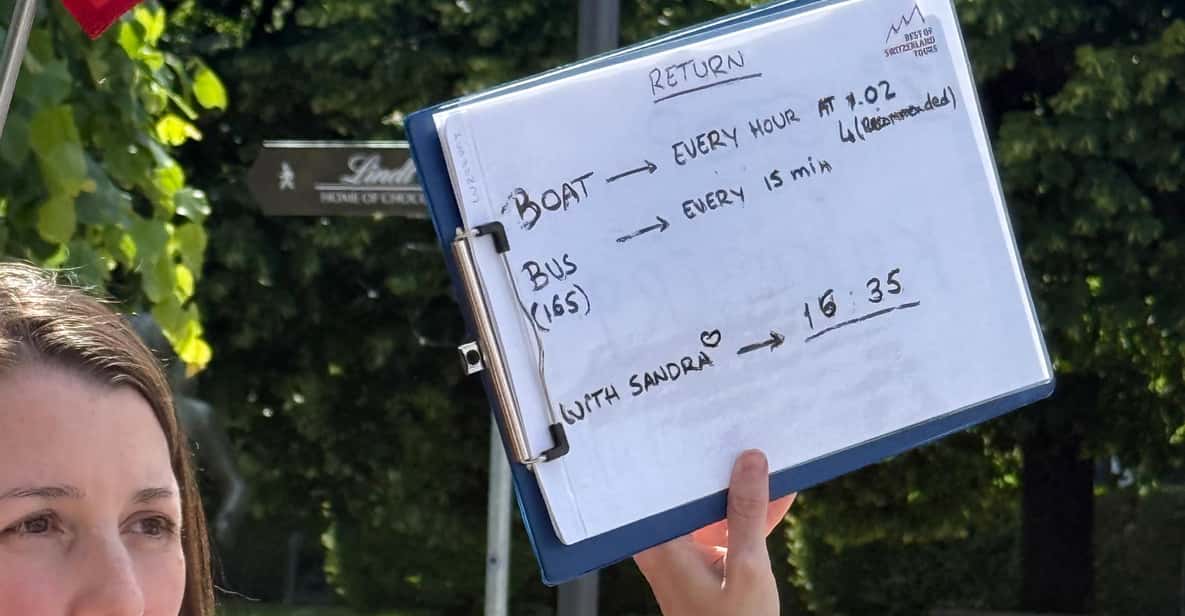 BEST OF
SWITZERLAND
TOURS
RETURN
BOAT → EVERY HOUR AT .02
↳ (Recommended)
BUS → EVERY 15 min
(165)
WITH SANDRA ♡ → 16:35
Lindt
HOME OF CHOC